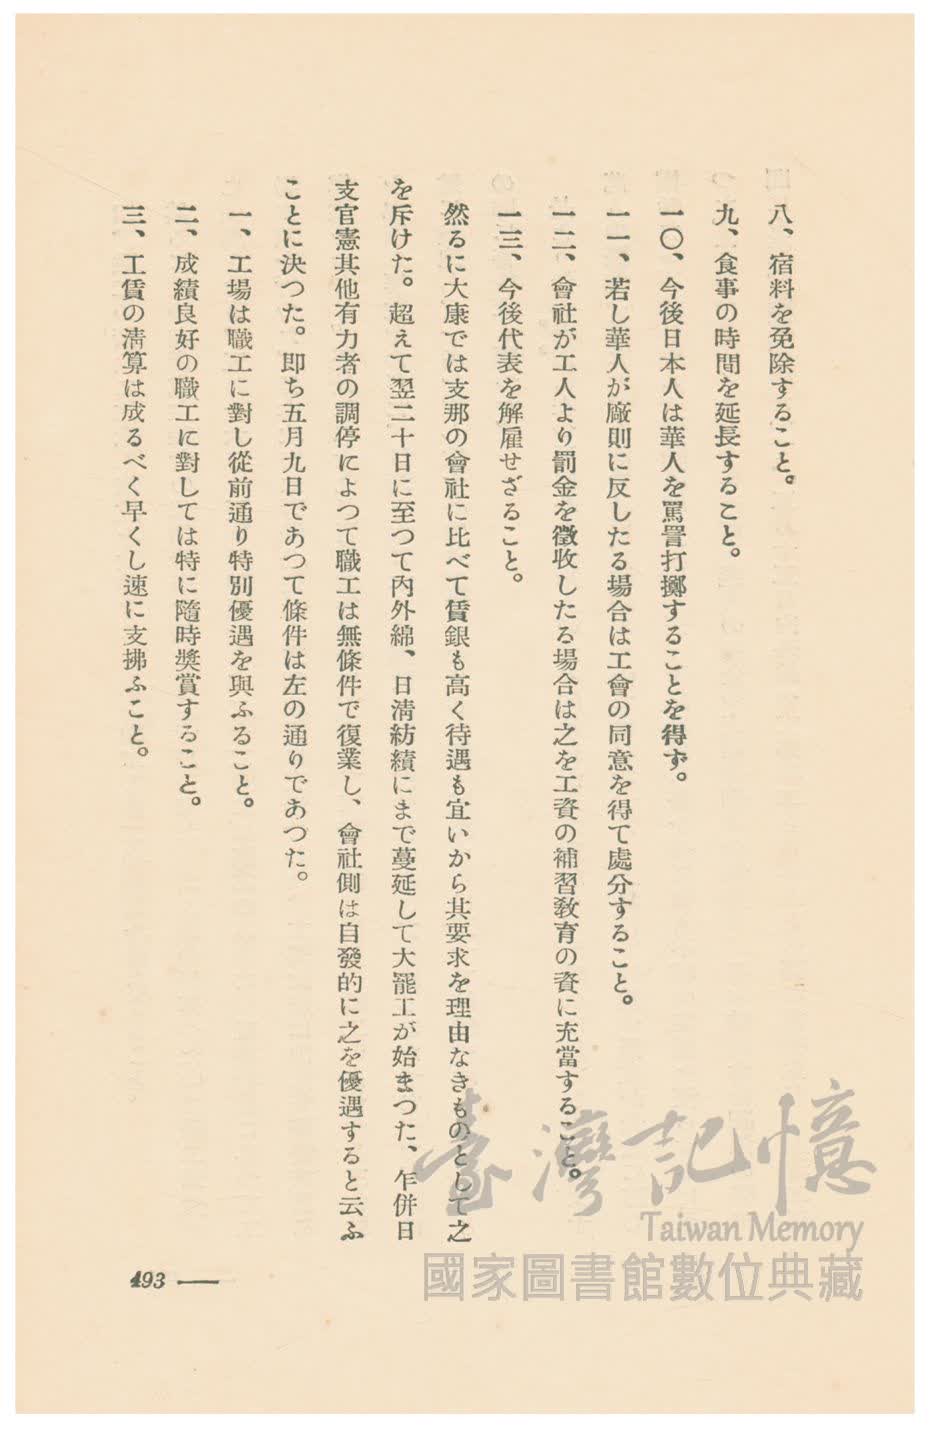 八、宿料を免除すること。
九、食事の時間を延長すること。
一〇、今後日本人は華人を罵詈打擲することを得ず。
一一、若し華人が廠則に反したる場合は工會の同意を得て處分すること。
一二、會社が工人より罰金を徵收したる場合は之を工資の補習敎育の資に充當すること。
一三、今後代表を解雇せざること。
然るに大康では支那の會社に比べて賃銀も高く待遇も宜いから其要求を理由なきものとして之
を斥けた。超えて翌二十日に至つて內外綿、日淸紡績にまで蔓延して大罷工が始まつた、乍併日
支官憲其他有力者の調停によつて職工は無條件で復業し、會社側は自發的に之を優遇すると云ふ
ことに決つた。卽ち五月九日であつて條件は左の通りであつた。
一、工場は職工に對し從前通り特別優遇を與ふること。
二、成績良好の職工に對しては特に隨時奬賞すること。
三、工賃の淸算は成るべく早くし速に支拂ふこと。
493 —
臺灣記憶
Taiwan Memory
國家圖書館數位典藏